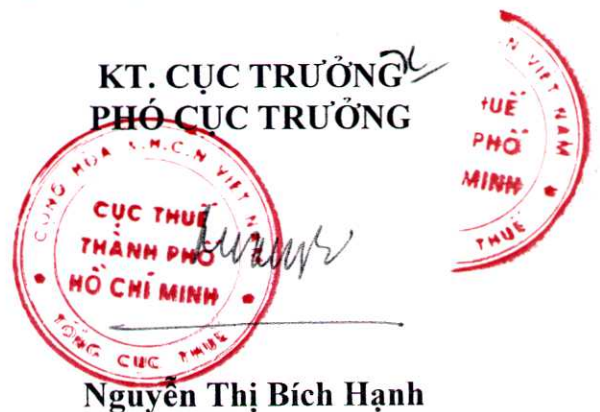 KT. CỤC TRƯỞNG
PHÓ CỤC TRƯỞNG
CỘNG HÒA X.H.C.N VIỆT NAM
CỤC THUẾ
THÀNH PHỐ
HỒ CHÍ MINH
TỔNG CỤC THUẾ
N VIỆT NAM
HUẾ
PHỐ
MINH
THUẾ
Nguyễn Thị Bích Hạnh